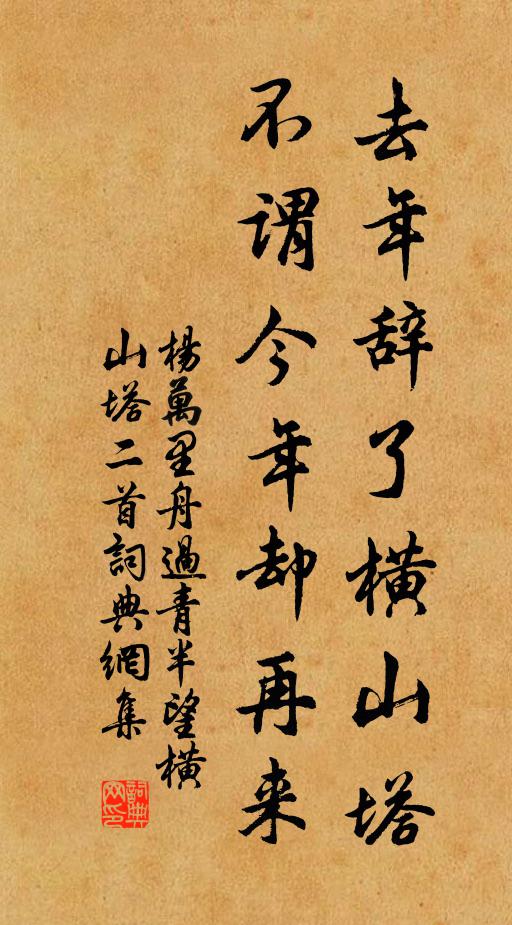 去年辞了横山塔
不谓今年却再来
楊萬里舟過青半望橫
山塔二首詞典網集
詞典網印